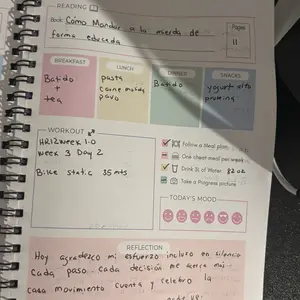 READING
Book: Cómo Mandar a la mierda de
forma educada
Pages
11
BREAKFAST
Batido
+
tea
LUNCH
pasta
carne molida
pavo
DINNER
Batido
SNACKS
yogurt alto
proteina
WORKOUT
HR12WEEK 1.0
Week 3 Day 2
Bike static 35 mts
Follow a Meal plan
One cheat meal per week
Drink 2L of Water 82 oz
Take a Progress picture
TODAY'S MOOD
REFLECTION
Hoy agradezco mi esfuerzo incluso en silencio
Cada paso cada decisión me acerca más
cada movimiento cuenta y celebro la